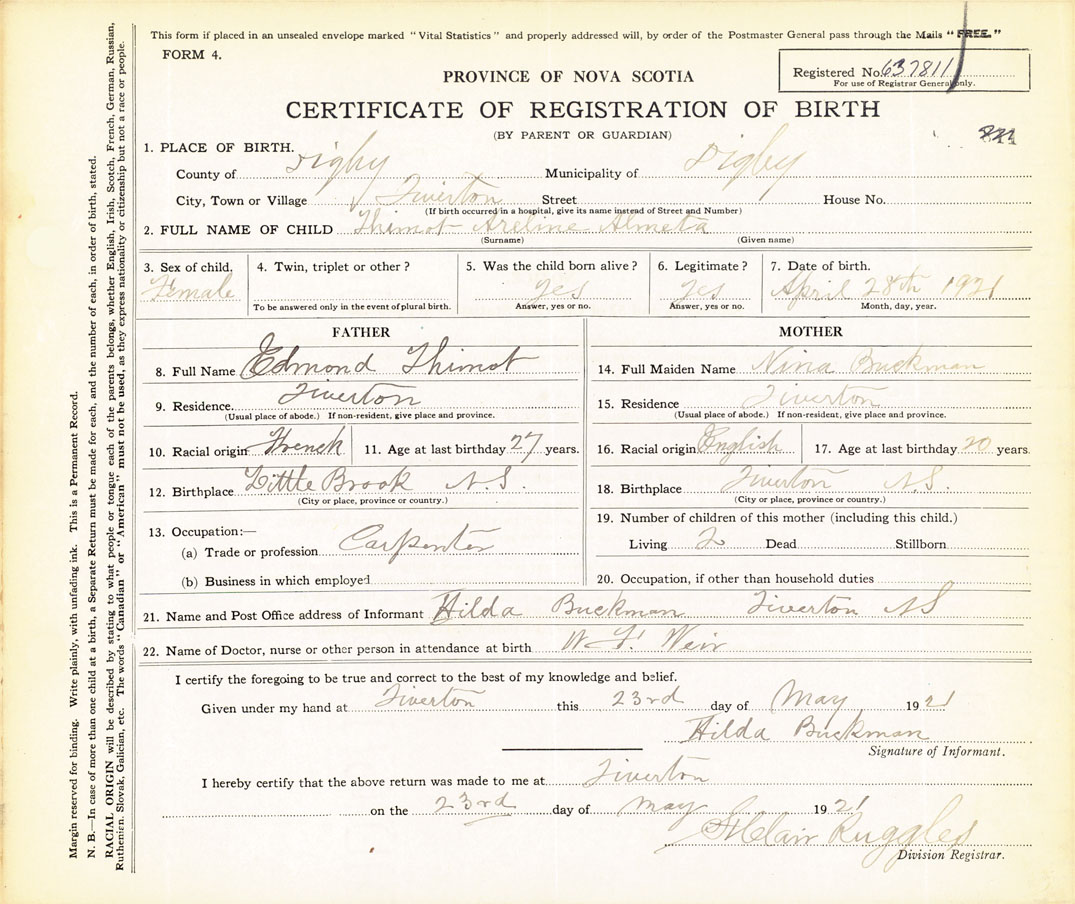 This form if placed in an unsealed envelope marked "Vital Statistics" and properly addressed will, by order of the Postmaster General pass through the Mails "FREE."
FORM 4.
Registered No. 637811
For use of Registrar General only.
PROVINCE OF NOVA SCOTIA
CERTIFICATE OF REGISTRATION OF BIRTH
(BY PARENT OR GUARDIAN)
1. PLACE OF BIRTH.
County of Digby Municipality of Digby
City, Town or Village Tiverton Street House No.
(If birth occurred in a hospital, give its name instead of Street and Number)
2. FULL NAME OF CHILD Thimot Areline Almeta
(Surname) (Given name)
3. Sex of child. 4. Twin, triplet or other? 5. Was the child born alive? 6. Legitimate? 7. Date of birth.
Female yes yes April 28th 1921
To be answered only in the event of plural birth. Answer, yes or no. Answer, yes or no. Month, day, year.
FATHER
8. Full Name Edmond Thimot
9. Residence. Tiverton
(Usual place of abode.) If non-resident, give place and province.
10. Racial origin French 11. Age at last birthday 27 years.
12. Birthplace Little Brook N.S.
(City or place, province or country.)
13. Occupation:—
(a) Trade or profession Carpenter
(b) Business in which employed
MOTHER
14. Full Maiden Name Nina Buckman
15. Residence Tiverton
(Usual place of abode.) If non-resident, give place and province.
16. Racial origin English 17. Age at last birthday 20 years.
18. Birthplace Tiverton N.S.
(City or place, province or country.)
19. Number of children of this mother (including this child.)
Living 2 Dead Stillborn
20. Occupation, if other than household duties
21. Name and Post Office address of Informant Hilda Buckman Tiverton NS
22. Name of Doctor, nurse or other person in attendance at birth W F Weir
I certify the foregoing to be true and correct to the best of my knowledge and belief.
Given under my hand at Tiverton this 23rd day of May 1921
Hilda Buckman
Signature of Informant.
I hereby certify that the above return was made to me at Tiverton
on the 23rd day of May 1921
StClair Ruggles
Division Registrar.
Margin reserved for binding. Write plainly, with unfading ink. This is a Permanent Record.
N. B.—In case of more than one child at a birth, a Separate Return must be made for each, and the number of each, in order of birth, stated.
RACIAL ORIGIN will be described by stating to what people or tongue each of the parents belongs, whether English, Irish, Scotch, French, German, Russian,
Ruthenian, Slovak, Galician, etc. The words "Canadian" or "American" must not be used, as they express nationality or citizenship but not a race or people.